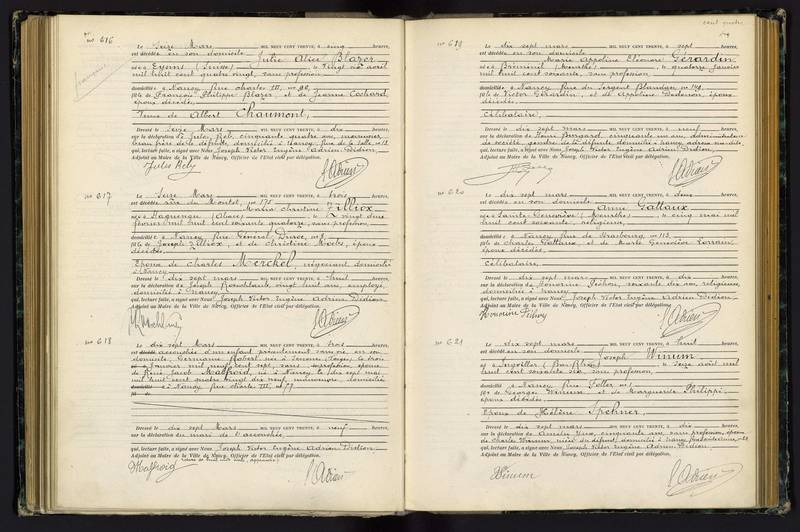 No 616
Le Seize Mars MIL NEUF CENT TRENTE, à cinq heures,
est décédée en son domicile Julie Alice Blazer
née à (Suisse) le vingt six avril
mil huit cent quatre vingt, sans profession
domiciliée à Nancy rue Charles III, no
fille de François Philippe Blazer, et de Jeanne Cochard,
époux décédés,
Veuve de Albert Chaumont,
Dressé le seize Mars MIL NEUF CENT TRENTE, à dix heures,
sur la déclaration de Jules cinquante quatre ans,
beau frère de la défunte, domicilié à Nancy, rue de la Salle no 12
qui, lecture faite, a signé avec Nous Joseph Victor Eugène Adrien Didion,
Adjoint au Maire de la Ville de Nancy, Officier de l'Etat civil par délégation.
No 617
Le Seize Mars MIL NEUF CENT TRENTE, à trois heures,
est décédée rue du Montet, no 175 Maria Christine Zilliox
née à Haguenau (Alsace) le vingt deux
février mil huit cent soixante quatorze, sans profession,
domiciliée à Nancy rue Général Duroc, no
fille de Joseph Zilliox, et de Christine époux
décédés
Epouse de Charles Merckel, négociant domicilié
à Nancy
Dressé le dix sept mars MIL NEUF CENT TRENTE, à huit heures,
sur la déclaration de Joseph vingt ans, employé,
domicilié à Nancy
qui, lecture faite, a signé avec Nous Joseph Victor Eugène Adrien Didion,
Adjoint au Maire de la Ville de Nancy, Officier de l'Etat civil par délégation.
No 618
Le dix sept Mars MIL NEUF CENT TRENTE, à trois heures,
est accouchée d'un enfant présentement sans vie, en son
domicile, Germaine Robert née à (Vosges) le trois
Janvier mil neuf cent sept, sans profession, épouse
de René Jacob Malfroid, né à Nancy le dix sept mai
mil huit cent quatre vingt dix neuf, domiciliés
à Nancy rue Charles III, no 77
Dressé le dix sept Mars MIL NEUF CENT TRENTE, à neuf heures,
sur la déclaration du mari de l'accouchée,
qui, lecture faite, a signé avec Nous Joseph Victor Eugène Adrien Didion
Adjoint au Maire de la Ville de Nancy, Officier de l'Etat civil par délégation.
Malfroid
cent quatre
No 619
Le dix sept mars MIL NEUF CENT TRENTE, à sept heures,
est décédée en son domicile Marie Appoline Eléonore Gérardin,
née à (Meurthe) le quatorze janvier
mil huit cent soixante, sans profession
domiciliée à Nancy rue du Sergent Blandan, no
fille de Victor Gérardin, et de Appoline époux
décédés,
Célibataire,
Dressé le dix sept mars MIL NEUF CENT TRENTE, à neuf heures,
sur la déclaration de Henri cinquante un ans,
de société, gendre de la défunte domicilié à Nancy,
qui, lecture faite, a signé avec Nous Joseph Victor Eugène Adrien Didion,
Adjoint au Maire de la Ville de Nancy, Officier de l'Etat civil par délégation.
No 620
Le dix sept mars MIL NEUF CENT TRENTE, à deux heures,
est décédée en son domicile Anne Gattaux
née à Sainte-Geneviève (Meurthe) le cinq mai mil
huit cent soixante, religieuse,
domiciliée à Nancy rue de Strasbourg no 113,
fille de Charles Gattaux, et de Marie Geneviève Lorrain,
époux décédés,
Célibataire,
Dressé le dix sept mars MIL NEUF CENT TRENTE, à dix heures,
sur la déclaration de Honorine soixante dix ans, religieuse,
domiciliée à Nancy
qui, lecture faite, a signé avec Nous Joseph Victor Eugène Adrien Didion,
Adjoint au Maire de la Ville de Nancy, Officier de l'Etat civil par délégation.
No 621
Le dix sept mars MIL NEUF CENT TRENTE, à huit heures,
est décédé en son domicile Joseph Winum
né à Ingwiller (Bas-Rhin) le seize août mil
huit cent soixante six, sans profession,
domicilié à Nancy Rue Feller no
fils de Georges Winum, et de Marguerite Philippi,
époux décédés
Epoux de Hélène Spehner,
Dressé le dix sept mars MIL NEUF CENT TRENTE, à dix heures,
sur la déclaration de cinquante ans, sans profession, épouse
de Charles Winum, du défunt, domiciliée à Nancy,
qui, lecture faite, a signé avec Nous Joseph Victor Eugène Adrien Didion,
Adjoint au Maire de la Ville de Nancy, Officier de l'Etat civil par délégation.
Winum